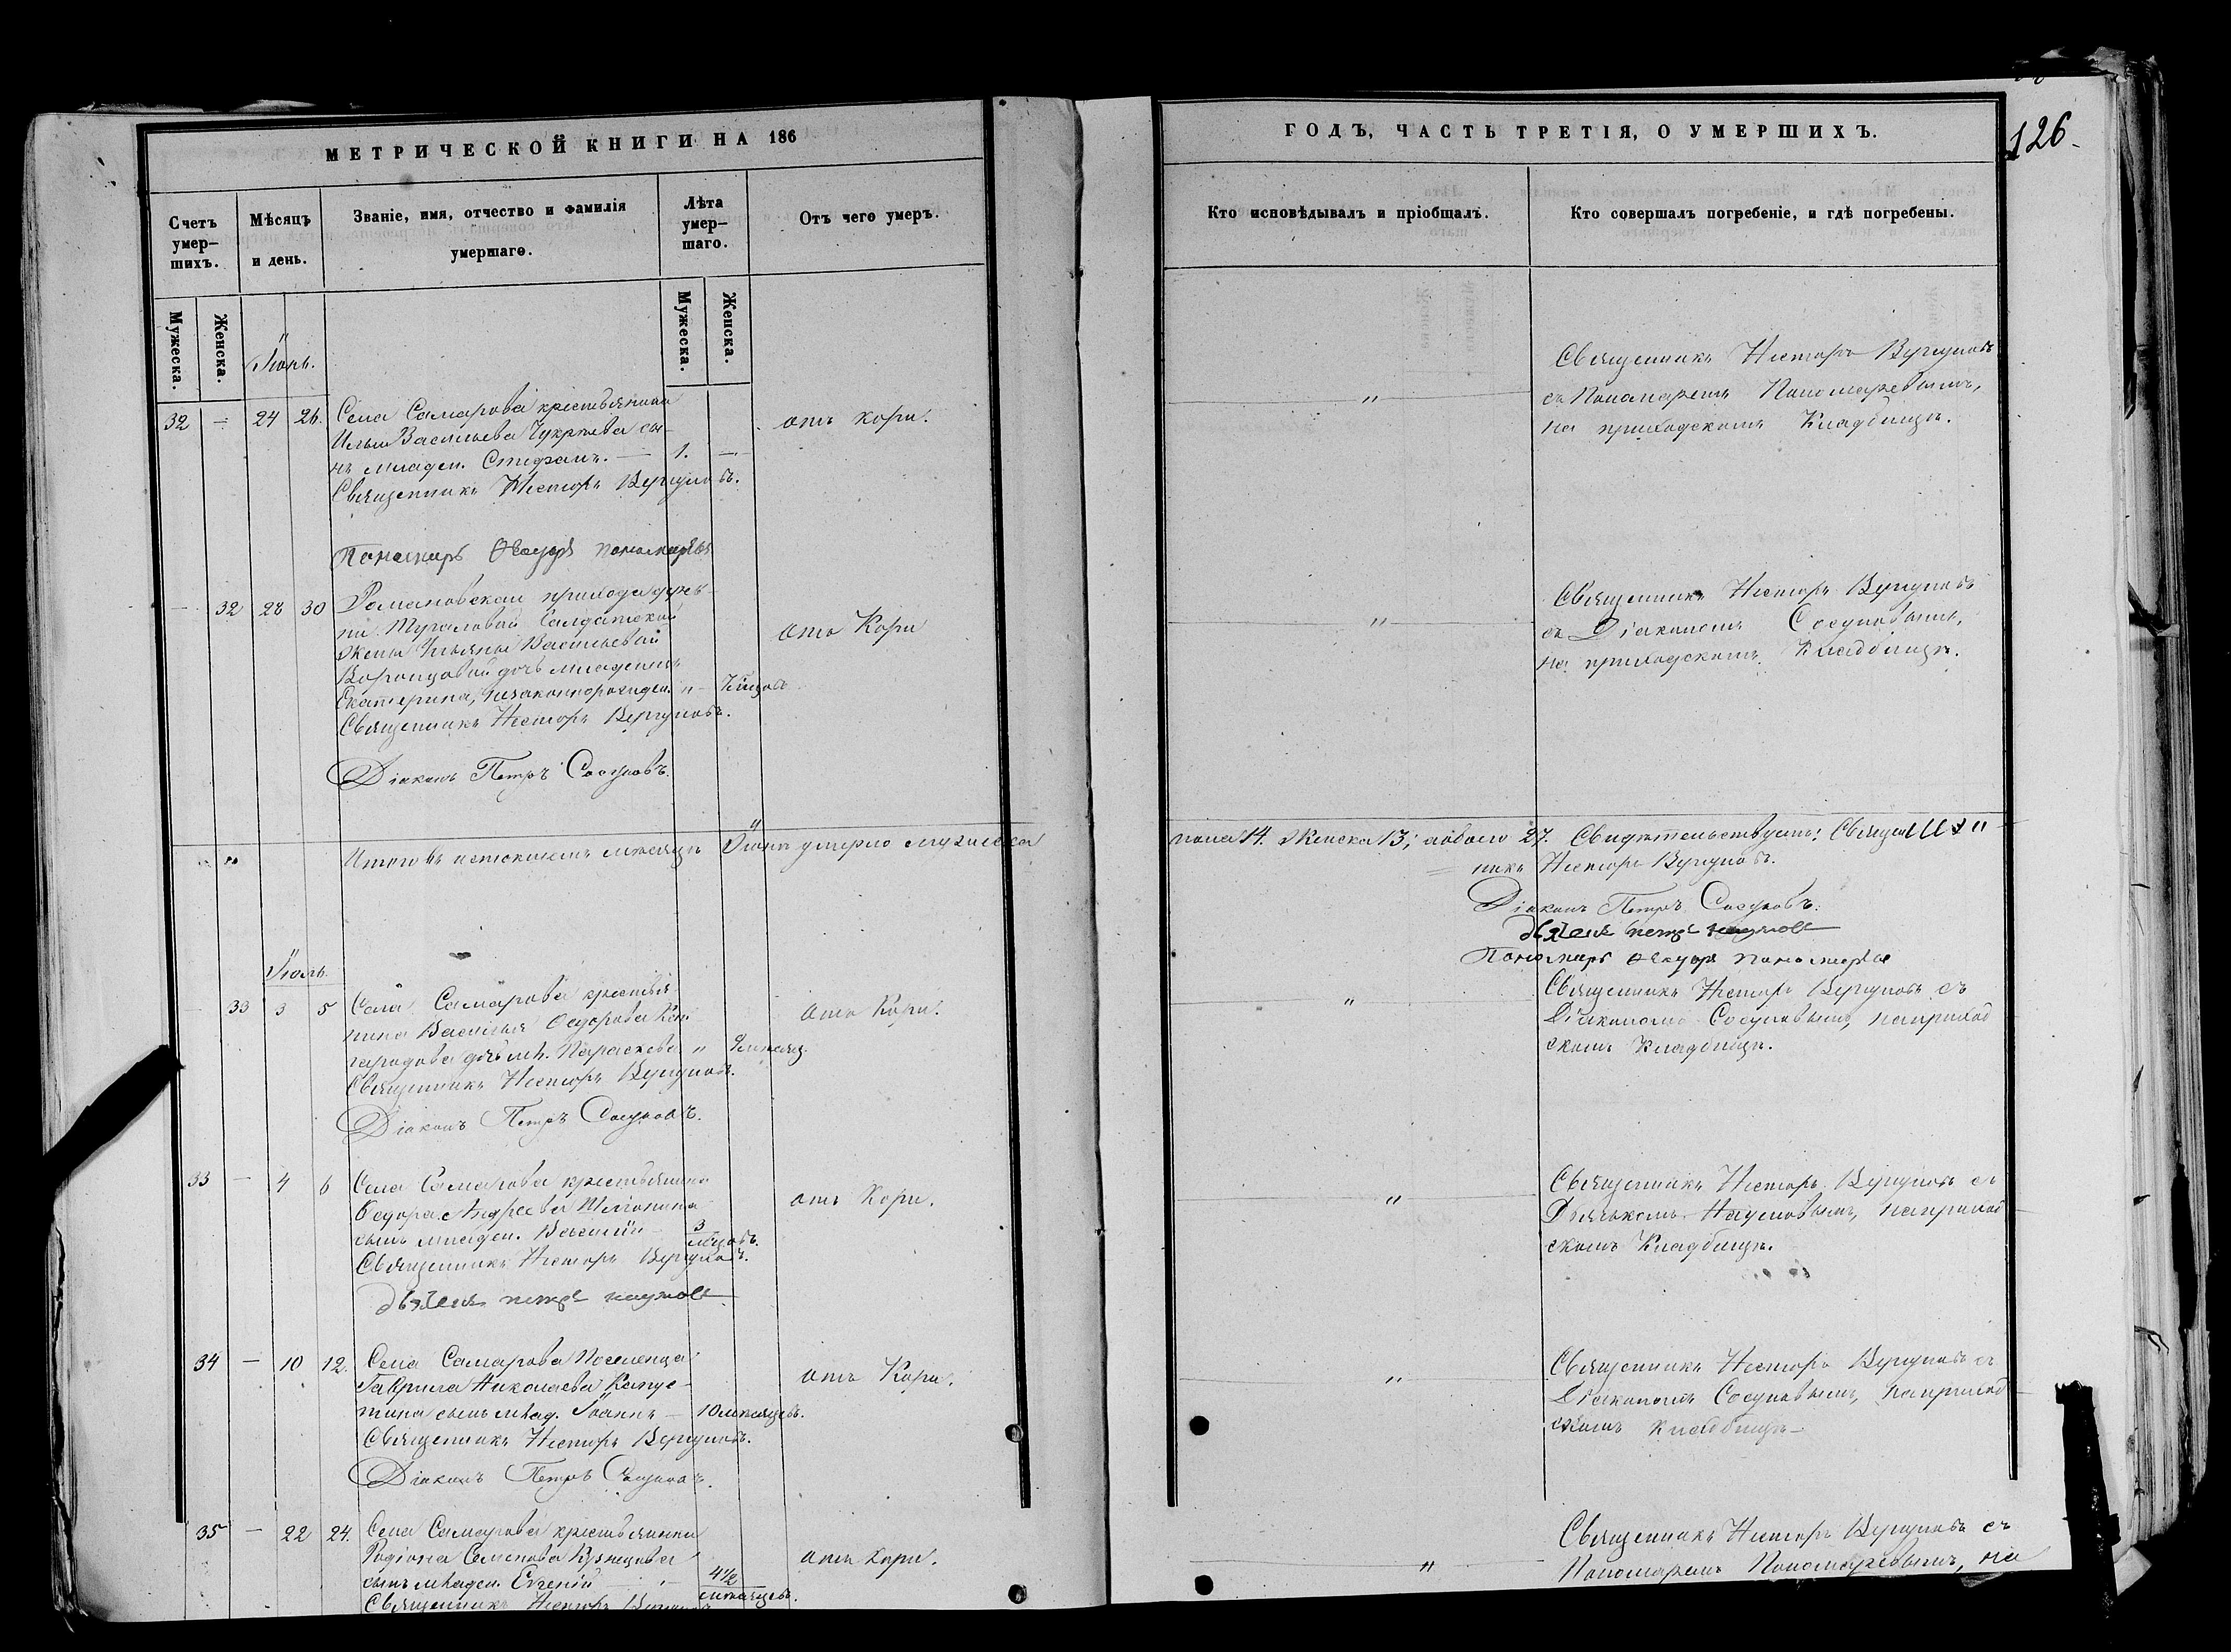 МЕТРИЧЕСКОЙ КНИГИ НА 186
Счетъ умер-шихъ.
Мѣсяцъ и день.
Званіе, имя, отчество и фамилія умершаго.
Лѣта умер-шаго.
Отъ чего умеръ.
Мужеска.
Женска.
Мужеска.
Женска.
Іюнь.
32 — 24 26. Села Самарова крестьянина
Ильи Васильева Чукреева сы-
нъ младен. Стефанъ. — 1. —
отъ кори.
Священникъ Несторъ Вергуновъ.
Пономарь Ѳеодоръ Пономаревъ
— 32 28 30 Романовской прихода дерев-
ни Солдатской
жены Ульяны Васильевой
Воронцовой дочь младенецъ
Екатерина, незаконнорожден. "
отъ Кори
Священникъ Несторъ Вергуновъ.
Діаконъ Петръ Сосуновъ.
Итого въ истекшемъ мѣсяцѣ Іюнѣ умерло мужеска
Іюль.
33 3 5 Села Самарова крестья-
нина Василья Ѳедорова
дочь мл. Параскева "
отъ Кори.
Священникъ Несторъ Вергуновъ.
Діаконъ Петръ Сосуновъ.
33 — 4 6 Села Самарова крестьянина
Ѳедора Андреева
сынъ младен. Василій — 3 мѣсцовъ.
отъ Кори.
Священникъ Несторъ Вергуновъ.
дьячекъ петръ наумовъ
34 — 10 12. Села Самарова поселенца
Гаврила Николаева Капус-
тина сынъ млад. Іоаннъ — 10 мѣсяцевъ.
отъ Кори.
Священникъ Несторъ Вергуновъ.
Діаконъ Петръ Сосуновъ.
35 — 22 24. Села Самарова крестьянина
Родіона Семенова Кузнецова
сынъ младен. Евгеній — 4 1/2 мѣсяцевъ.
отъ кори.
Священникъ Несторъ
ГОДЪ, ЧАСТЬ ТРЕТІЯ, О УМЕРШИХЪ.
126.
Кто исповѣдывалъ и пріобщалъ.
Кто совершалъ погребеніе, и гдѣ погребены.
Священникъ Несторъ Вергуновъ
съ Пономаремъ Пономаревымъ,
на приходскомъ Кладбищѣ.
Священникъ Несторъ Вергуновъ
съ Діакономъ Сосуновымъ,
на приходскомъ Кладбищѣ.
пола 14. Женска 13; обоего 27. Свидѣтельствуемъ: Священ-
никъ Несторъ Вергуновъ.
Діаконъ Петръ Сосуновъ.
дьячекъ петръ наумовъ
Пономарь Ѳеодоръ пономаревъ
Священникъ Несторъ Вергуновъ съ
Діакономъ Сосуновымъ, на приход
скомъ Кладбищѣ.
Священникъ Несторъ Вергуновъ съ
Дьячкомъ Наумовымъ, на приход
скомъ Кладбищѣ.
Священникъ Несторъ Вергуновъ съ
Діакономъ Сосуновымъ, на приход
скомъ кладбищѣ
Священникъ Несторъ Вергуновъ съ
Пономаремъ Пономаревымъ, на